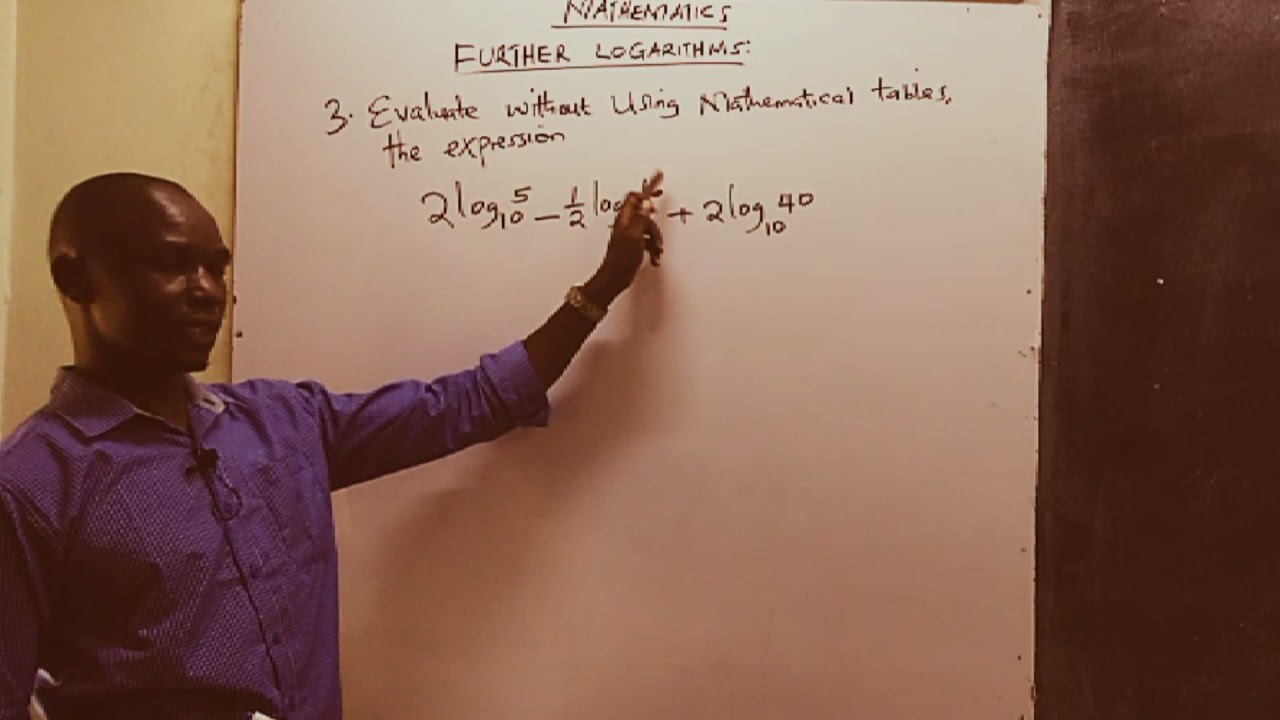 MATHEMATICS
FURTHER LOGARITHMS:
3. Evaluate without Using Mathematical tables,
the expression
2log₁₀5 – ½log + 2log₁₀40